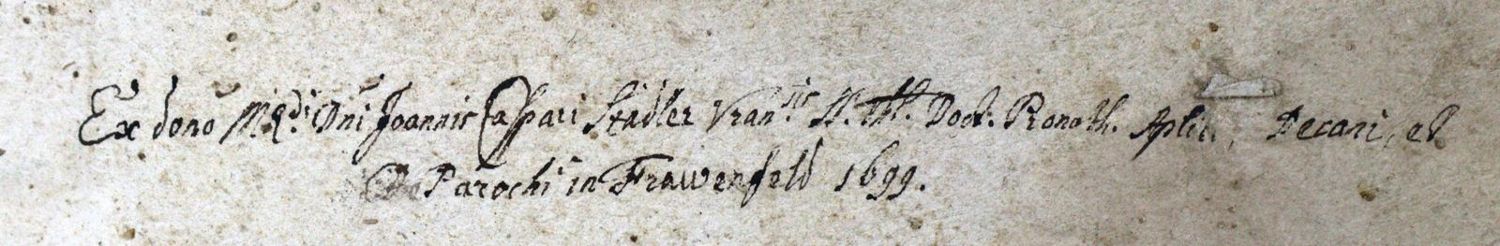 Ex dono M. Rdi Dni Joannis Caspari Stadler Vran.is SS. Th. Doct. Pronoth. Aplici, Decani, et
Parochi in Frawenfeld 1699.